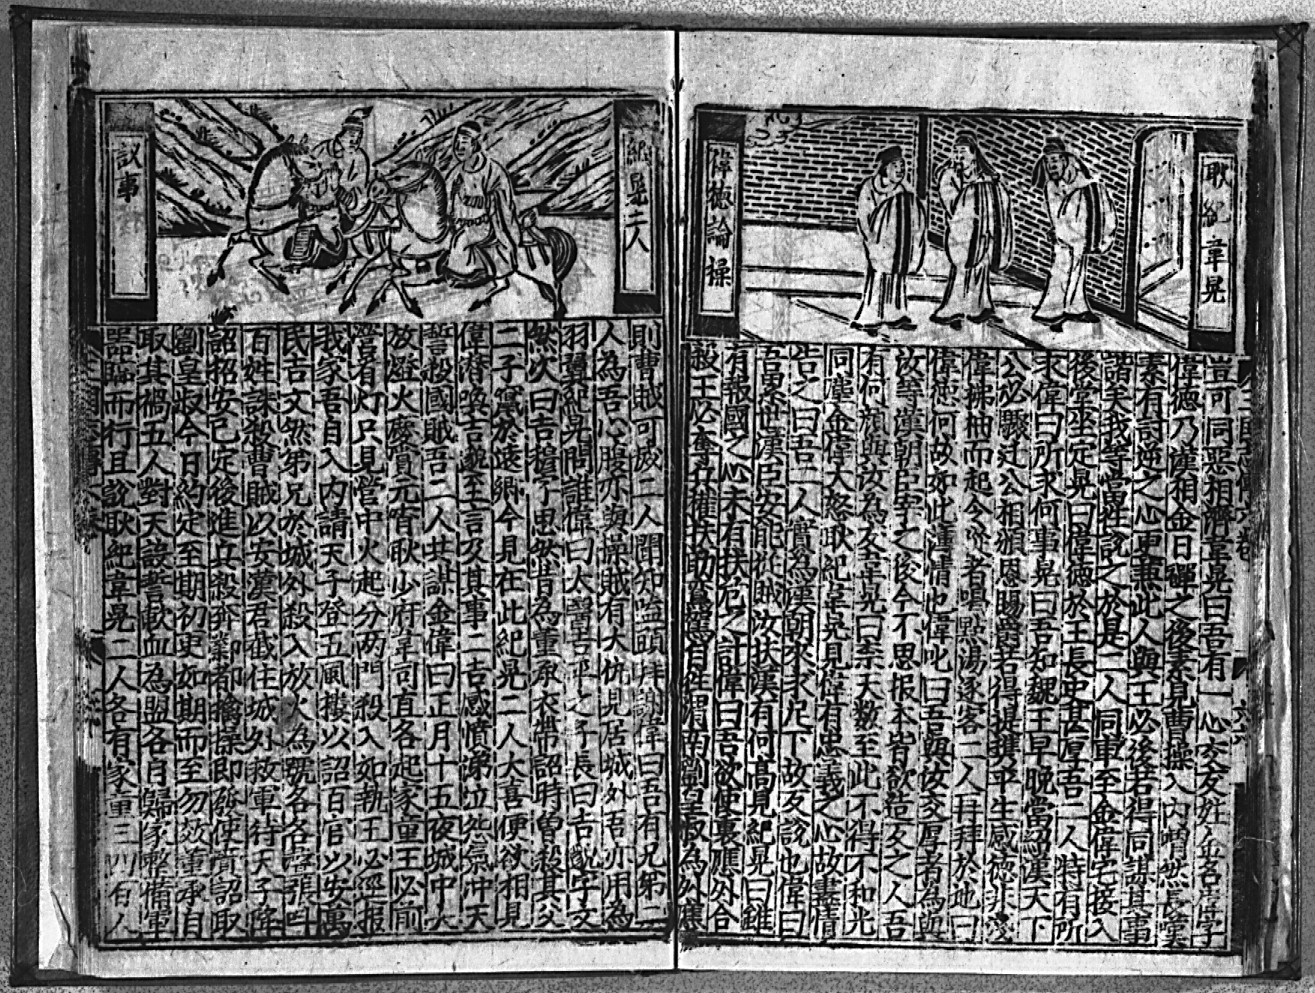 耿紀韋晃
偉德論操
豈可同惡相濟韋晃曰吾有一心交友姓金名禕字
偉德乃漢相金日磾之後素見曹操入內喟然長嘆
素有討逆之心更兼此人與王必後若得同謀其事
諧矣我等當往說之於是二人同車至金偉宅接入
後堂坐定晃曰偉德於王長史甚厚吾二人特有所
求偉曰所求何事晃曰吾知魏王早晚當紹漢天下
公必驟迁公相頒恩賜爵若得提携平生感德非淺
偉拂袖而起令從者喝點湯逐客二人拜拜於地曰
偉德何故如此薄情也偉叱曰吾與汝交厚者為與
汝等漢朝臣宰之後今不思报本皆欲造反之人吾
有何顏與汝為友韋晃曰奈天數至此不得不和光
同塵金偉大怒耿紀韋晃見偉有忠義之心故盡情
告之曰吾二人實為漢朝來求足下故反說也偉曰
吾累世漢臣安能從賊汝扶漢有何高見紀晃曰雖
有報國之心未有扶危之計偉曰吾欲使裏應外合
殺王必奪兵權扶助鑾駕自往渭南劉皇叔為外應
紀晃二人
議事
則曹賊可滅二人聞知嗑頭拜謝偉曰吾有兄弟二
人為吾心腹亦與操賊有大仇見居城外吾亦用為
羽翼紀晃問誰偉曰太醫吉平之子長曰吉邈字文
然次曰吉穆字思然昔為董承衣帶詔時曾殺其父
二子竄於遠鄉今見在此紀晃二人大喜便欲相見
偉潛喚吉邈至言及其事二吉感憤涕泣怨氣沖天
誓殺國賊吾二人共謀金偉曰正月十五夜城中大
放燈火慶賞元宵耿少府韋司直各起家童王必前
營有灯只見營中火起分两門殺入如執王必逕报
我家吾自入内請天子登五鳳樓以詔百官以安萬
民吉文然弟兄於城外殺入放火為號各各聲張叫
百姓誅殺曹賊以安漢君截住城外救軍待天子降
詔招安已定後進兵殺奔鄴郡擒操即發使賫詔取
劉皇叔今日約定至期初更如期而至勿效董承自
取其禍五人對天設誓歃血為盟各自歸家整備軍
器臨而行且說耿紀韋晃二人各有家童三四有人